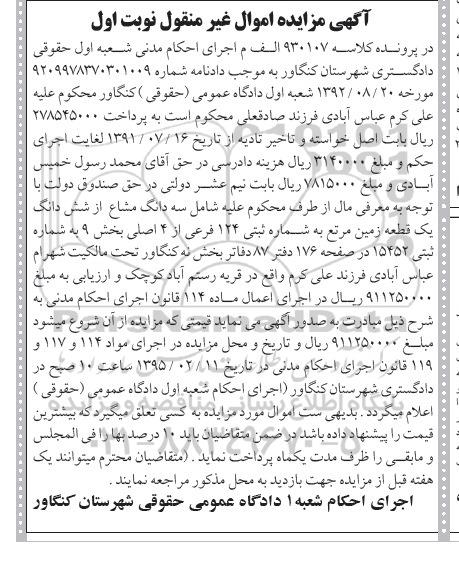 آگهی مزایده اموال غیر منقول نوبت اول
در پرونده کلاسه ۹۳۰۱۰۷ الف م اجرای احکام مدنی شعبه اول حقوقی
دادگستری شهرستان کنگاور به موجب دادنامه شماره ۹۲۰۹۹۷۸۳۷۰۳۰۱۰۰۹
مورخه ۲۰ / ۰۸ / ۱۳۹۲ شعبه اول دادگاه عمومی (حقوقی) کنگاور محکوم علیه
علی کرم عباس آبادی فرزند صادقعلی محکوم است به پرداخت ۲۷۸۵۴۵۰۰۰
ریال بابت اصل خواسته و تاخیر تادیه از تاریخ ۱۶ / ۰۷ / ۱۳۹۱ لغایت اجرای
حکم و مبلغ ۳۱۴۰۰۰۰ ریال هزینه دادرسی در حق آقای محمد رسول خمیس
آبادی و مبلغ ۷۸۱۵۰۰۰ ریال بابت نیم عشر دولتی در حق صندوق دولت با
توجه به معرفی مال از طرف محکوم علیه شامل سه دانگ مشاع از شش دانگ
یک قطعه زمین مرتع به شماره ثبتی ۱۲۴ فرعی از ۴ اصلی بخش ۹ به شماره
ثبتی ۱۵۴۵۲ در صفحه ۱۷۶ دفتر ۸۷ دفاتر بخش نه کنگاور تحت مالکیت شهرام
عباس آبادی فرزند علی کرم واقع در قریه رستم آباد کوچک و ارزیابی به مبلغ
۹۱۱۲۵۰۰۰۰ ریال در اجرای اعمال ماده ۱۱۴ قانون اجرای احکام مدنی به
شرح ذیل مبادرت به صدور آگهی می نماید قیمتی که مزایده از آن شروع میشود
مبلغ ۹۱۱۲۵۰۰۰۰ ریال و تاریخ و محل مزایده در اجرای مواد ۱۱۴ و ۱۱۷ و
۱۱۹ قانون اجرای احکام مدنی در تاریخ ۱۱ / ۰۲ / ۱۳۹۵ ساعت ۱۰ صبح در
دادگستری شهرستان کنگاور (اجرای احکام شعبه اول دادگاه عمومی (حقوقی)
اعلام میگردد . بدیهی ست اموال مورد مزایده به کسی تعلق میگیرد که بیشترین
قیمت را پیشنهاد داده باشد در ضمن متقاضیان باید ۱۰ درصد بها را فی المجلس
و مابقی را ظرف مدت یکماه پرداخت نماید . (متقاضیان محترم میتوانند یک
هفته قبل از مزایده جهت بازدید به محل مذکور مراجعه نمایند .
اجرای احکام شعبه ۱ دادگاه عمومی حقوقی شهرستان کنگاور